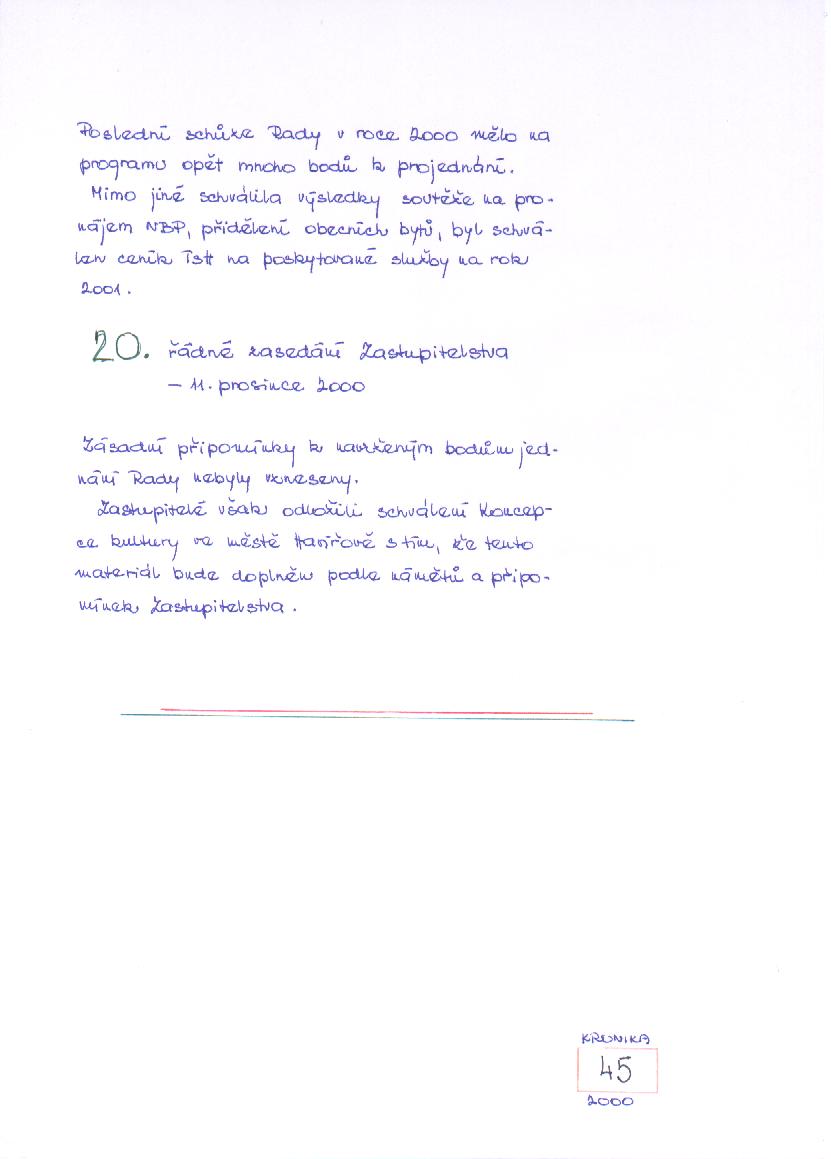 Poslední schůze Rady v roce 2000 mělo na
programu opět mnoho bodů k projednání.
Mimo jiné schválila výsledky soutěže na pro-
nájem NBP, přidělení obecních bytů, byl schvá-
len ceník TSH na poskytované služby na rok
2001.
20. řádné zasedání Zastupitelstva
– 11. prosince 2000
Zásadní připomínky k navrženým bodům jed-
nání Rady nebyly vzneseny.
Zastupitelé však odložili schválení Koncep-
ce kultury ve městě Havířově s tím, že tento
materiál bude doplněn podle námětů a připo-
mínek Zastupitelstva.
KRONIKA
45
2000